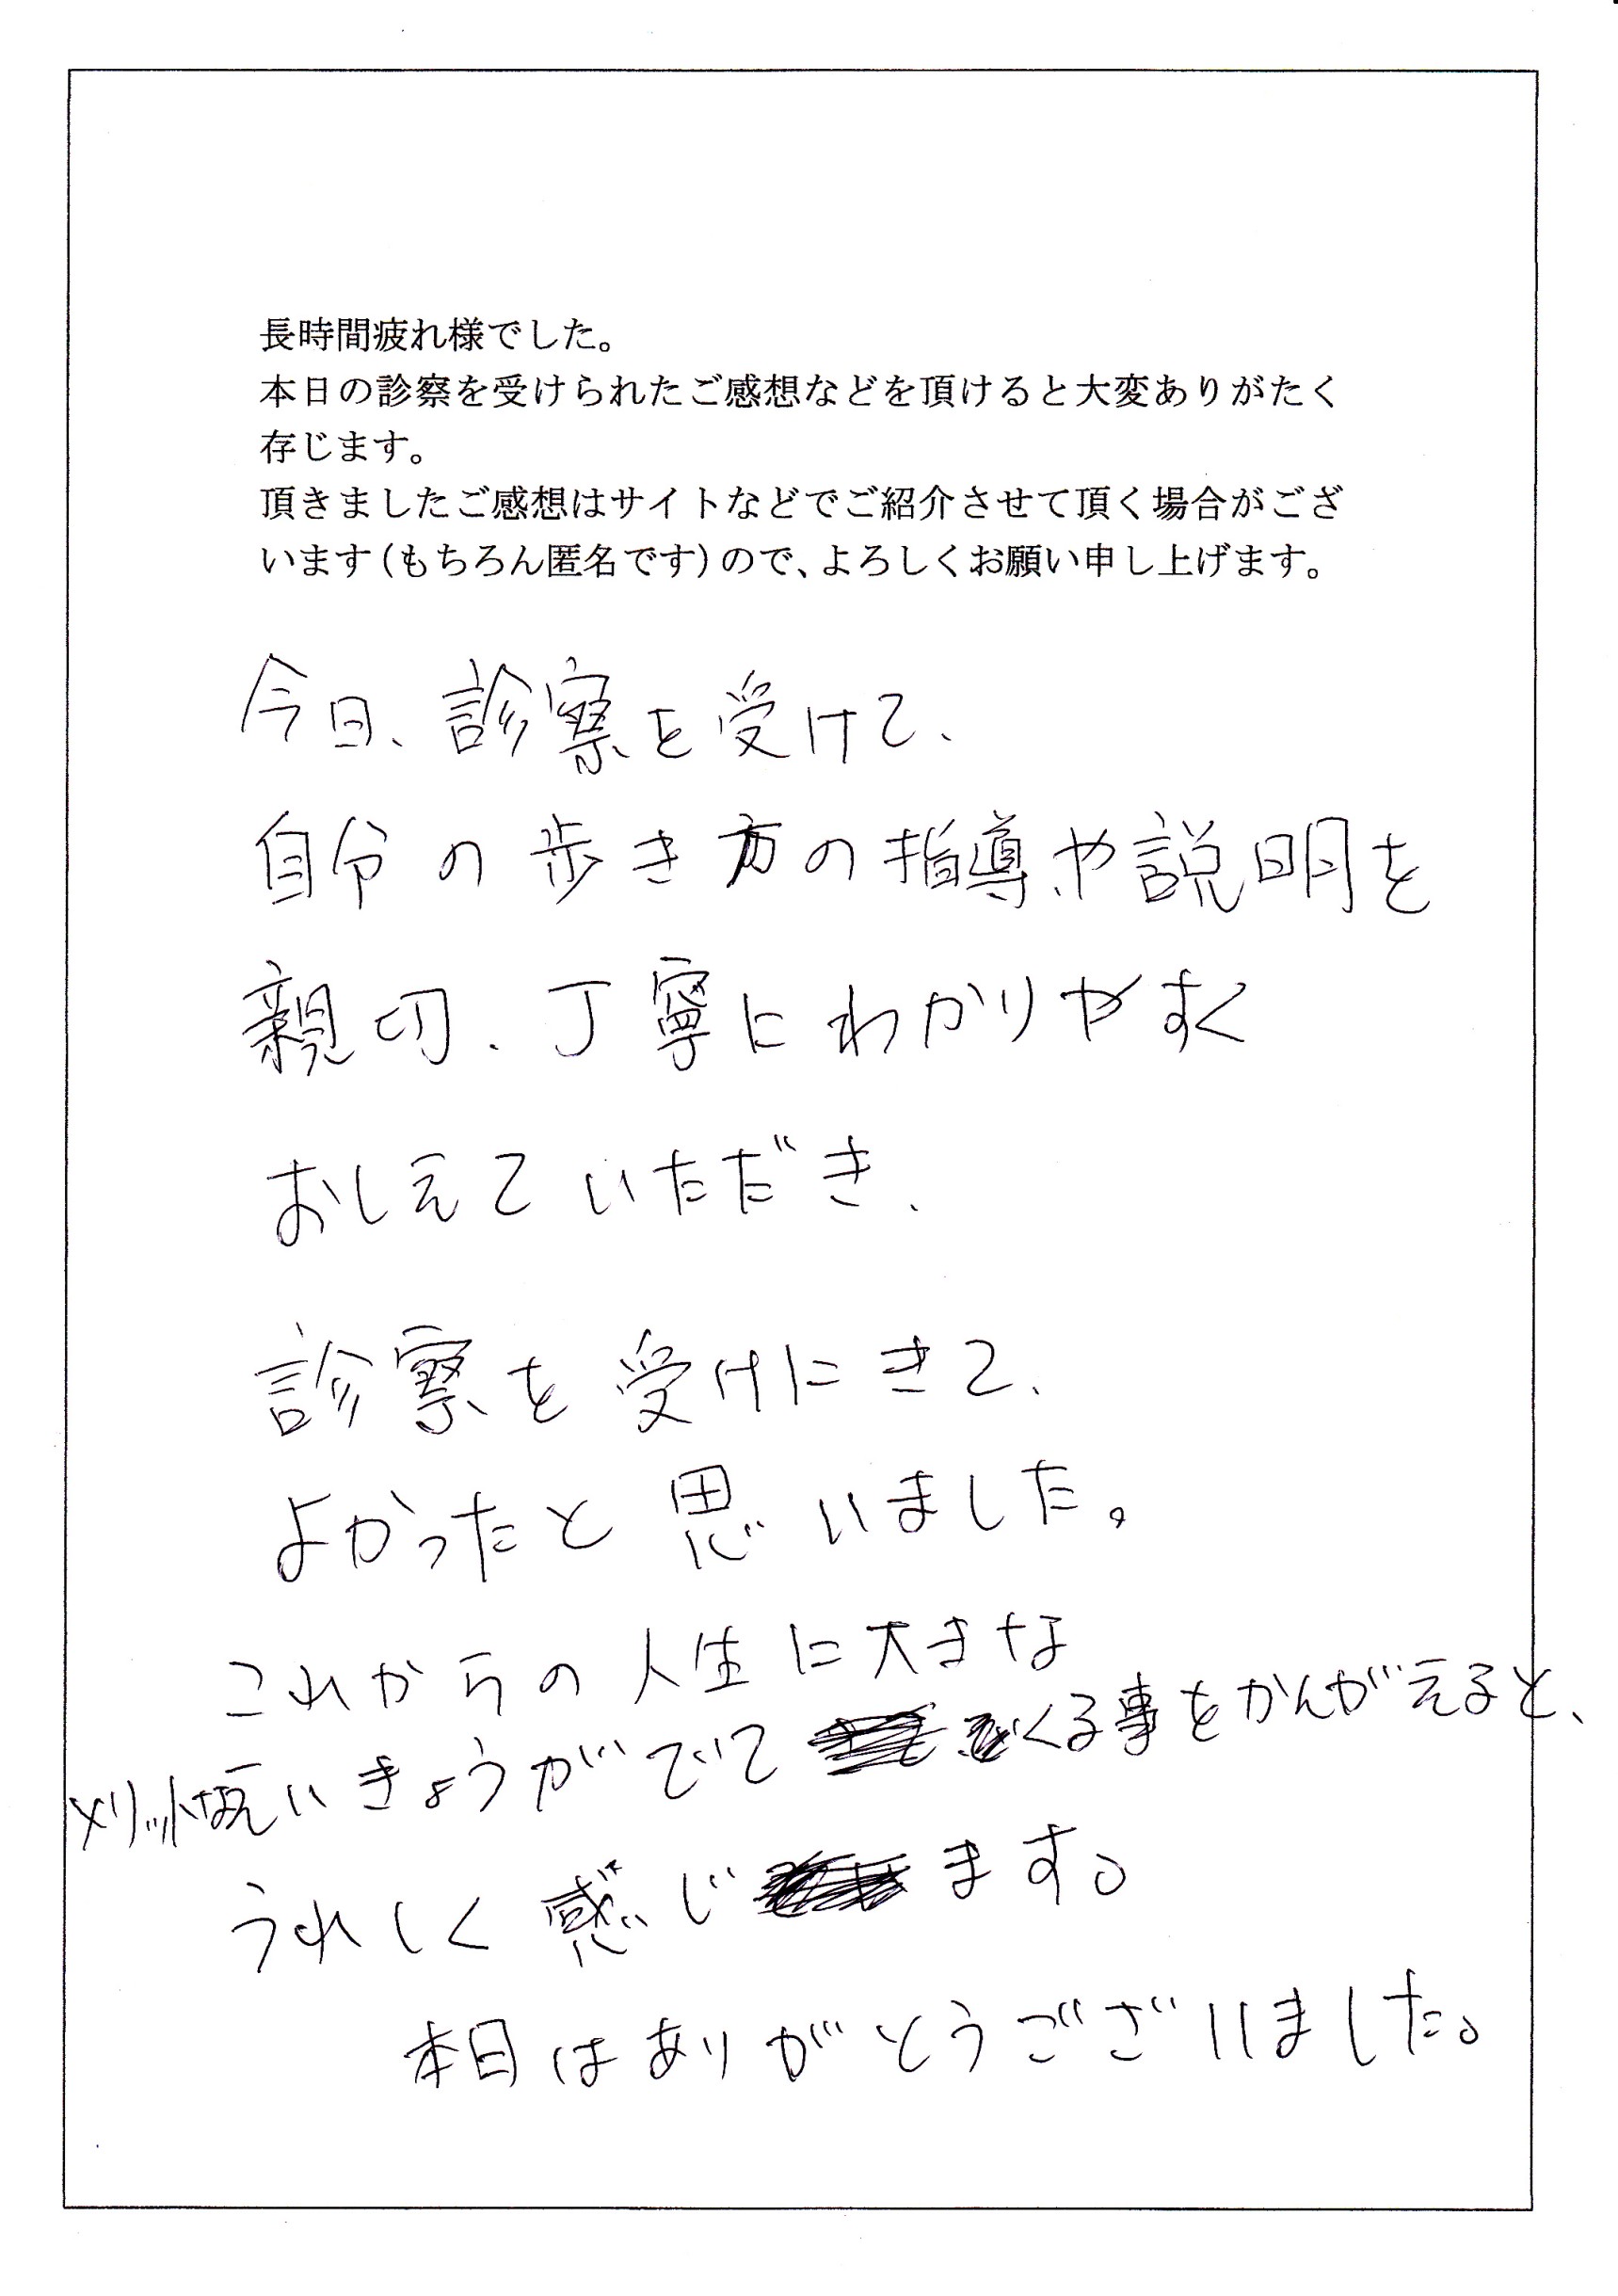 長時間疲れ様でした。
本日の診察を受けられたご感想などを頂けると大変ありがたく
存じます。
頂きましたご感想はサイトなどでご紹介させて頂く場合がござ
います(もちろん匿名です)ので、よろしくお願い申し上げます。
今日、診察を受けて、
自分の歩き方の指導や説明を
親切、丁寧にわかりやすく
おしえていただき、
診察を受けにきて、
よかったと思いました。
これからの人生に大きな
いきょうがでて くる事をかんがえると、
うれしく感じ ます。
本日はありがとうございました。